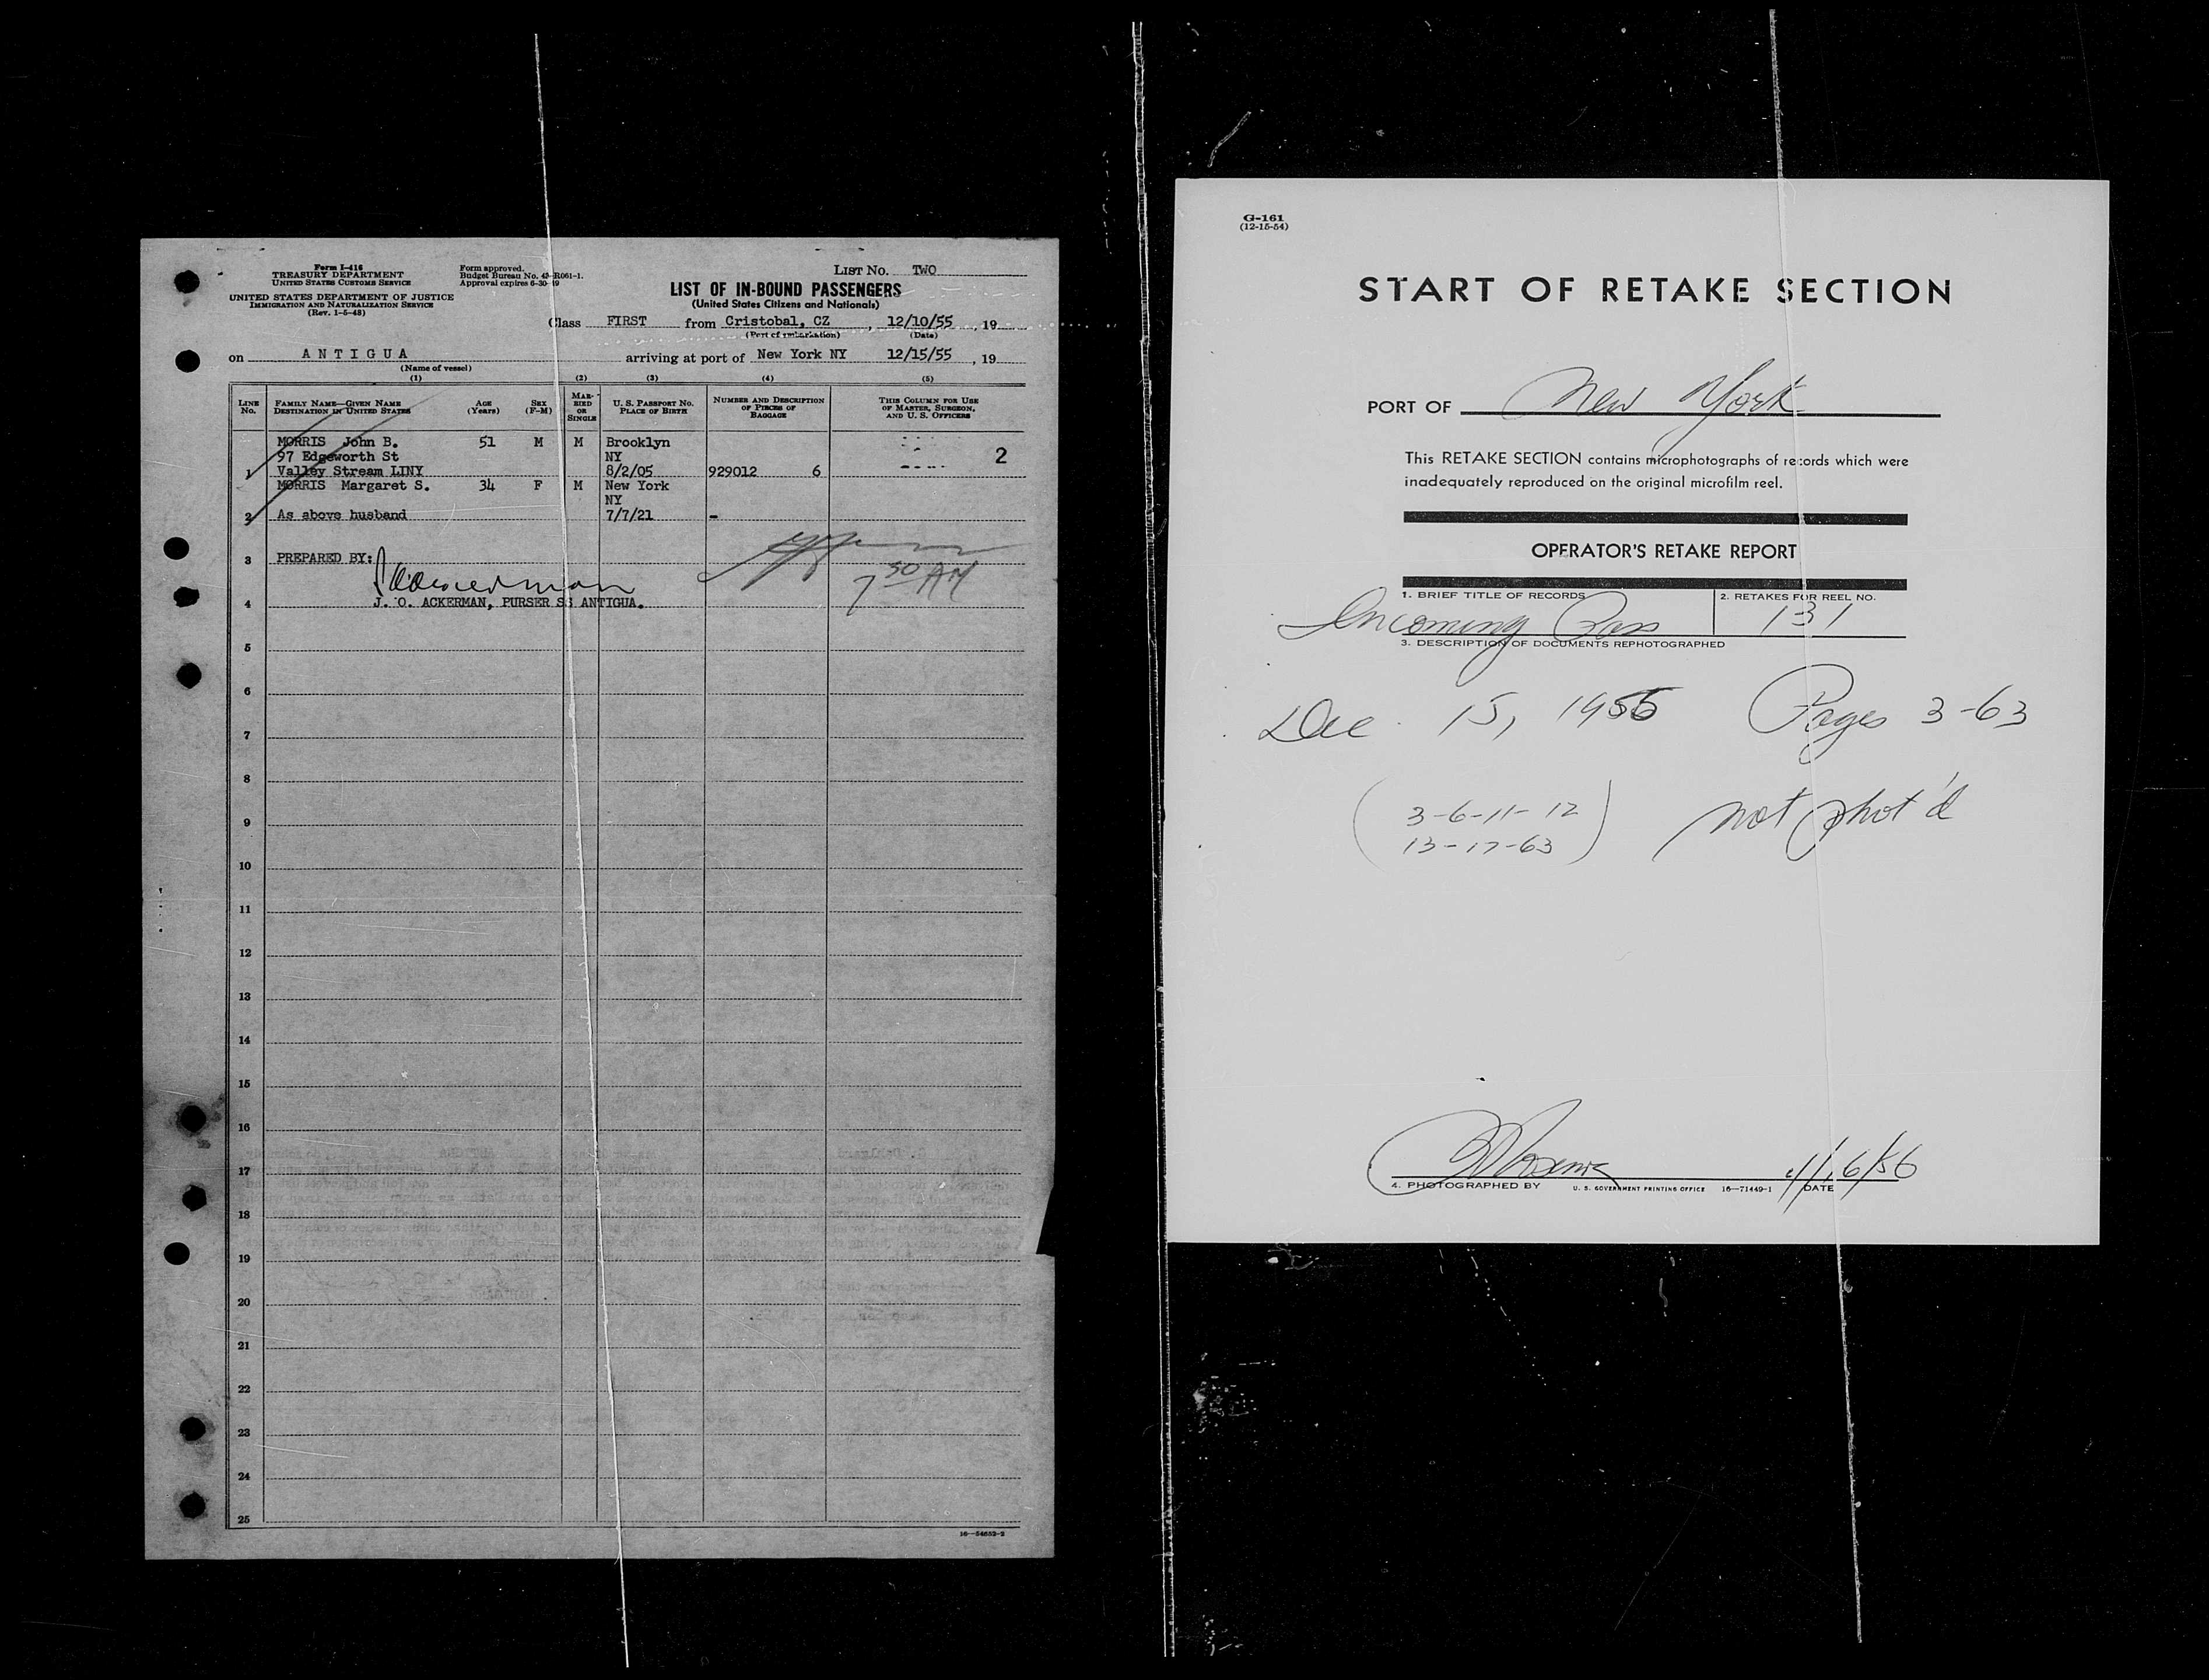 Form I-416
TREASURY DEPARTMENT
UNITED STATES CUSTOMS SERVICE
UNITED STATES DEPARTMENT OF JUSTICE
IMMIGRATION AND NATURALIZATION SERVICE
(Rev. 1-5-48)
Form approved.
Budget Bureau No. 43-R061-1.
Approval expires 6-30-49
LIST No. TWO
LIST OF IN-BOUND PASSENGERS
(United States Citizens and Nationals)
Class FIRST from Cristobal, CZ, 12/10/55, 19
(Port of embarkation) (Date)
on ANTIGUA arriving at port of New York NY 12/15/55, 19
(Name of vessel)
(1) (2) (3) (4) (5)
LINE No. FAMILY NAME—GIVEN NAME DESTINATION IN UNITED STATES AGE (Years) SEX (F-M) MARRIED OR SINGLE U. S. PASSPORT NO. PLACE OF BIRTH NUMBER AND DESCRIPTION OF PIECES OF BAGGAGE THIS COLUMN FOR USE OF MASTER, SURGEON, AND U. S. OFFICERS
MORRIS John B. 51 M M Brooklyn
97 Edgeworth St NY 2
1 Valley Stream LINY 8/2/05 929012 6
MORRIS Margaret S. 34 F M New York
NY
2 As above husband 7/7/21 -
3 PREPARED BY:
7 30 AM
4 J. O. ACKERMAN, PURSER SS ANTIGUA.
5
6
7
8
9
10
11
12
13
14
15
16
17
18
19
20
21
22
23
24
25
16—54652-2
G-161
(12-15-54)
START OF RETAKE SECTION
PORT OF New York
This RETAKE SECTION contains microphotographs of records which were
inadequately reproduced on the original microfilm reel.
OPERATOR'S RETAKE REPORT
1. BRIEF TITLE OF RECORDS 2. RETAKES FOR REEL NO.
Incoming Pass 131
3. DESCRIPTION OF DOCUMENTS REPHOTOGRAPHED
Dec. 15, 1955 Pages 3-63
(3-6-11-12
13-17-63) not phot'd
11/6/56
4. PHOTOGRAPHED BY U. S. GOVERNMENT PRINTING OFFICE 16—71449-1 DATE